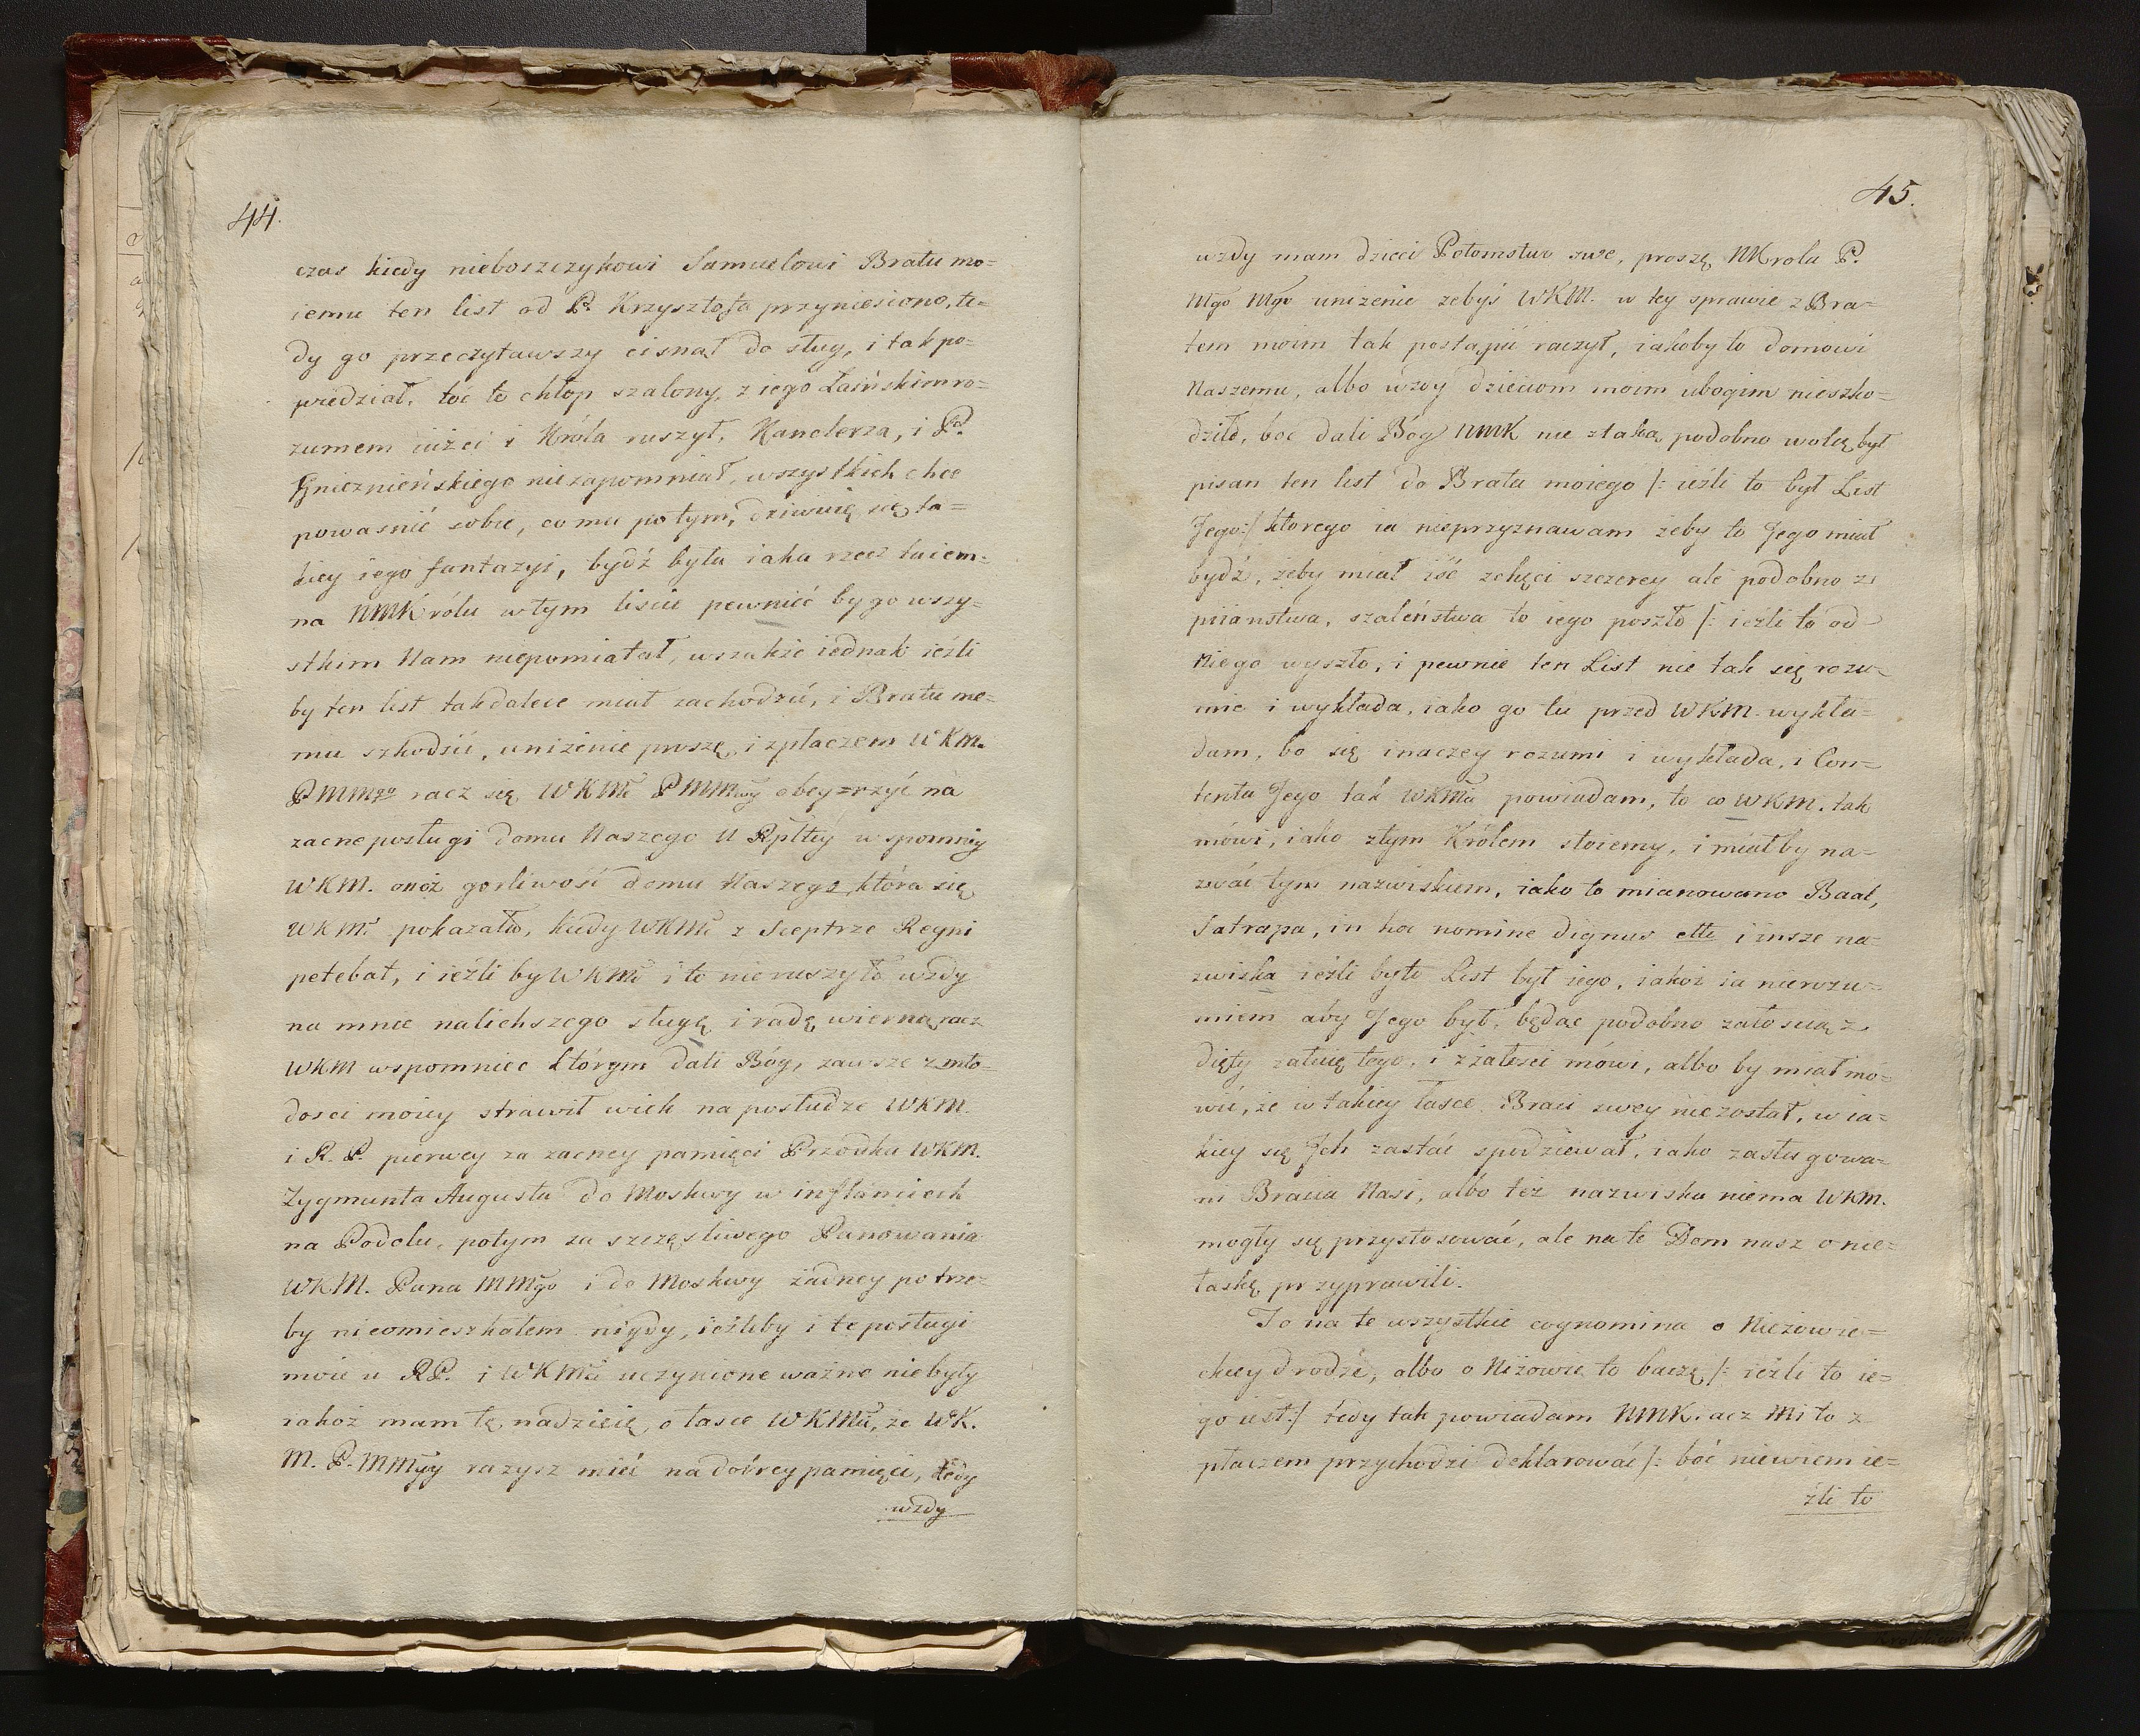 44.
czas kiedy nieboszczykowi Samuelowi Bratu mo=
iemu ten list od P. Krzysztofa przyniesiono, te=
dy go przeczytawszy cisnął do sług, i tak po=
wiedział. toć to chłop szalony, z iego Łasińskim ro=
zumem iużci i Króla ruszył, Kanclerza, i P.
Gnieznieńskiego niezapomniał, wszystkich chce
powasnić sobie, co mu potym, dziwuię się ta=
kiey iego fantazyi, bydź była iaka rzecz taiem=
na NMKrólu w tym liscie pewnieć by go wszy=
stkim Nam niepomiatał, wszakże iednak ieźli
by ten list takdalece miał zachodzić, i Bratu me=
mu szkodzić, uniżenie proszę, i z płaczem WKM.
PMMgo racz się WKMć PMMwy obeyzrzyć na
zacne posługi domu Naszego U Rpltéy wspomniy
WKM. onoż gorliwość domu Naszego, która się
WKMć pokazało, kiedy WKMć z Sceptrze Regni
petebat, i ieźli by WKMć i to nieruszyło wzdy
na mnie nalichszego sługę i radę wierną racz
WKM wspomniec którym dali Bóg, zawsze z mło=
dosci moiey strawił wiek na posłudze WKM.
i R. P. pierwey za zacney pamięci Przodka WKM.
Zygmunta Augusta do Moskwy w inflanciech
na Podolu, potym za szczęsliwego Panowania
WKM. Pana MMgo i do Moskwy żadney potrze=
by nieomieszkałem nigdy, ieźliby i te posługi
moie u RP. i WKMći uczynione ważne niebyły
iakoż mam tę nadzieię, o łasce WKMći, że WK.
M. P. MMgy razysz mieć na dobrey pamięci, tedy
wzdy
45.
wzdy mam dzieci Potomstwo swe, proszę NKrola P.
Mgo Mgo uniżenie zebyś WKM. w tey sprawie z Bra=
tem moim tak postąpić raczył, iakoby to domowi
Naszemu, albo wzdy dzieciom moim ubogim nieszko=
dziło, boc dali Bóg NMK nie z taką podobno wolą był
pisan ten list do Brata moiego /: ieźli to był List
Jego :/ ktorego ia nieprzyznawam żeby to Jego miał
bydź, żeby miał iść z chęci szczerey ale podobno z
piianstwa, szaleństwa to iego poszło /: ieźli to od
niego wyszło, i pewnie ten List nie tak się rozu=
mie i wykłada, iako go tu przed WKM. wykła=
dam, bo się inaczey rozumi i wykłada, i Con=
tenta Jego tak WKMci powiadam, to co WKM. tak
mówi, iako złym Królem stoiemy, i miałby na=
zwać tym nazwiskiem, iako to mianowano Baal,
Satrapa, in hoc nomine dignus ette i insze na=
zwiska ieźli byłe List był iego, iakoż ia nierozu=
miem aby Jego był, będąc podobno załoscią z
dięty załuię tego, i z żałosci mówi, albo by miał mó=
wić, że w takiey łasce Braci swey niezostał, w ia=
kiey się Jch zastać spodziewał, iako zasługowa=
ni Bracia Nasi, albo też nazwiska niema WKM.
mogły się przystosować, ale na te Dom nasz o nie=
łaskę przyprawili.
To na te wszystkie cognomina o Nieżowie=
ckiey drodze, albo o Niżowie to baczę /: ieźli to ie=
go iest :/ tedy tak powiadam NMK. acz Mi to z
płaczem przychodzi deklarować /: boć niewiem ie=
źli to